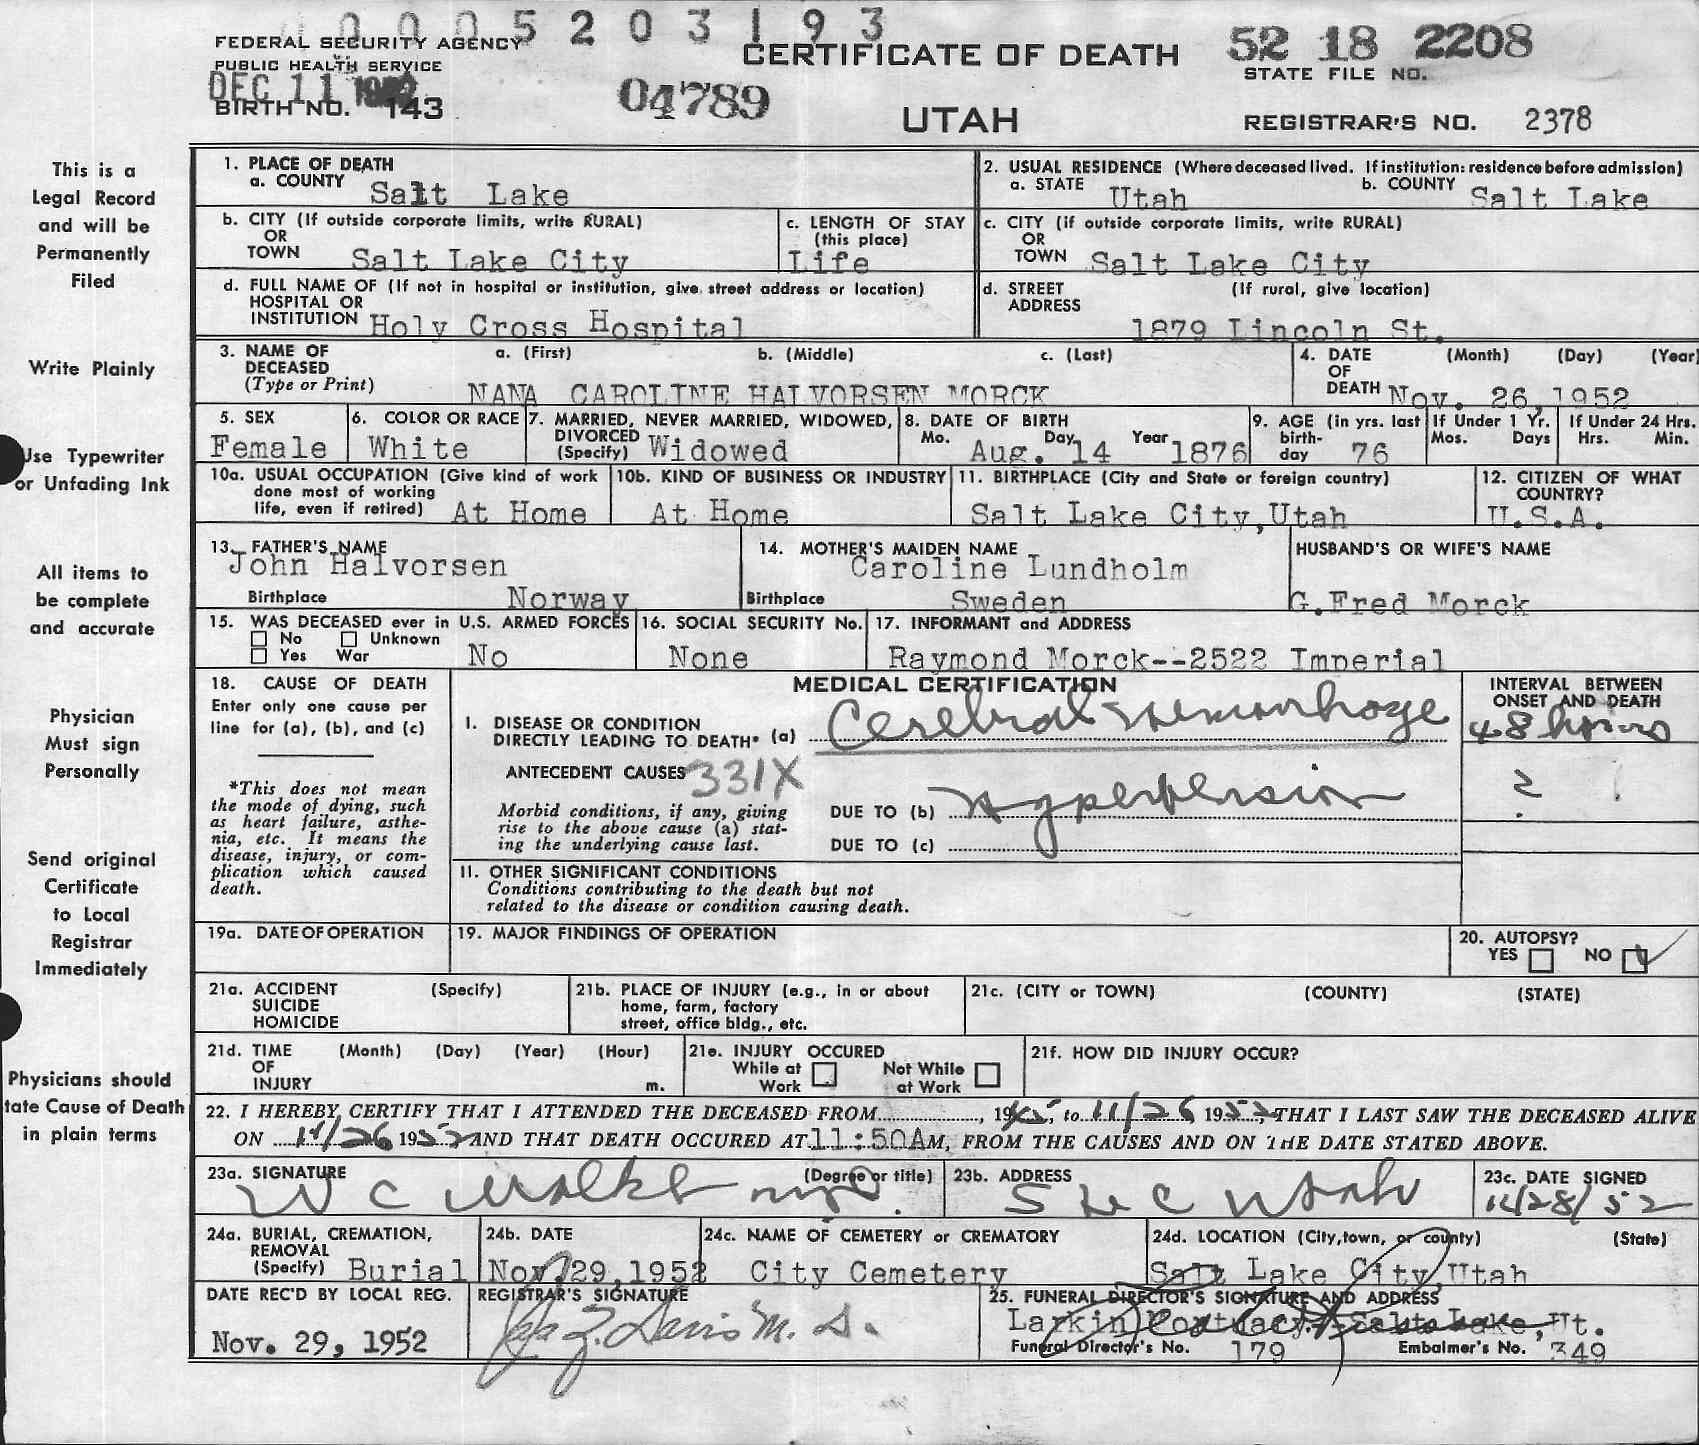 0005203193
FEDERAL SECURITY AGENCY
PUBLIC HEALTH SERVICE
CERTIFICATE OF DEATH
52 18 2208
STATE FILE NO.
DEC 11 1952
BIRTH NO. 143
04789
UTAH
REGISTRAR'S NO. 2378
This is a
Legal Record
and will be
Permanently
Filed
Write Plainly
Use Typewriter
or Unfading Ink
All items to
be complete
and accurate
Physician
Must sign
Personally
Send original
Certificate
to Local
Registrar
Immediately
Physicians should
tate Cause of Death
in plain terms
1. PLACE OF DEATH
a. COUNTY Salt Lake
2. USUAL RESIDENCE (Where deceased lived. If institution: residence before admission)
a. STATE Utah b. COUNTY Salt Lake
b. CITY (If outside corporate limits, write RURAL)
OR
TOWN Salt Lake City
c. LENGTH OF STAY
(this place)
Life
c. CITY (if outside corporate limits, write RURAL)
OR
TOWN Salt Lake City
d. FULL NAME OF (If not in hospital or institution, give street address or location)
HOSPITAL OR
INSTITUTION Holy Cross Hospital
d. STREET (If rural, give location)
ADDRESS
1879 Lincoln St.
3. NAME OF a. (First) b. (Middle) c. (Last)
DECEASED
(Type or Print) NANA CAROLINE HALVORSEN MORCK
4. DATE (Month) (Day) (Year)
OF
DEATH Nov. 26, 1952
5. SEX
Female
6. COLOR OR RACE
White
7. MARRIED, NEVER MARRIED, WIDOWED,
DIVORCED
(Specify) Widowed
8. DATE OF BIRTH
Mo. Day Year
Aug. 14 1876
9. AGE (in yrs. last
birth-
day 76
If Under 1 Yr.
Mos. Days
If Under 24 Hrs.
Hrs. Min.
10a. USUAL OCCUPATION (Give kind of work
done most of working
life, even if retired) At Home
10b. KIND OF BUSINESS OR INDUSTRY
At Home
11. BIRTHPLACE (City and State or foreign country)
Salt Lake City,Utah
12. CITIZEN OF WHAT
COUNTRY?
U.S.A.
13. FATHER'S NAME
John Halvorsen
Birthplace Norway
14. MOTHER'S MAIDEN NAME
Caroline Lundholm
Birthplace Sweden
HUSBAND'S OR WIFE'S NAME
G.Fred Morck
15. WAS DECEASED ever in U.S. ARMED FORCES
No Unknown
Yes War No
16. SOCIAL SECURITY No.
None
17. INFORMANT and ADDRESS
Raymond Morck--2522 Imperial
18. CAUSE OF DEATH
Enter only one cause per
line for (a), (b), and (c)
*This does not mean
the mode of dying, such
as heart failure, asthe-
nia, etc. It means the
disease, injury, or com-
plication which caused
death.
MEDICAL CERTIFICATION
I. DISEASE OR CONDITION
DIRECTLY LEADING TO DEATH* (a) Cerebral Hemorrhage
INTERVAL BETWEEN
ONSET AND DEATH
48 hours
ANTECEDENT CAUSES 331X
Morbid conditions, if any, giving
rise to the above cause (a) stat-
ing the underlying cause last.
DUE TO (b) Hypertension ?
DUE TO (c)
11. OTHER SIGNIFICANT CONDITIONS
Conditions contributing to the death but not
related to the disease or condition causing death.
19a. DATE OF OPERATION
19. MAJOR FINDINGS OF OPERATION
20. AUTOPSY?
YES NO
21a. ACCIDENT (Specify)
SUICIDE
HOMICIDE
21b. PLACE OF INJURY (e.g., in or about
home, farm, factory
street, office bldg., etc.
21c. (CITY or TOWN) (COUNTY) (STATE)
21d. TIME (Month) (Day) (Year) (Hour)
OF
INJURY m.
21e. INJURY OCCURED
While at Work Not While at Work
21f. HOW DID INJURY OCCUR?
22. I HEREBY CERTIFY THAT I ATTENDED THE DECEASED FROM 1945, to 11/26 1952, THAT I LAST SAW THE DECEASED ALIVE
ON 11/26 1952 AND THAT DEATH OCCURED AT 11:50AM, FROM THE CAUSES AND ON THE DATE STATED ABOVE.
23a. SIGNATURE (Degree or title)
W C Walker M.D.
23b. ADDRESS
S L C Utah
23c. DATE SIGNED
11/28/52
24a. BURIAL, CREMATION,
REMOVAL
(Specify) Burial
24b. DATE
Nov.29,1952
24c. NAME OF CEMETERY or CREMATORY
City Cemetery
24d. LOCATION (City,town, or county) (State)
Salt Lake City,Utah
DATE REC'D BY LOCAL REG.
Nov. 29, 1952
REGISTRAR'S SIGNATURE
Davis M. D.
25. FUNERAL DIRECTOR'S SIGNATURE AND ADDRESS
Larkin Mortuary--Salt Lake,Ut.
Funeral Director's No. 179 Embalmer's No. 349